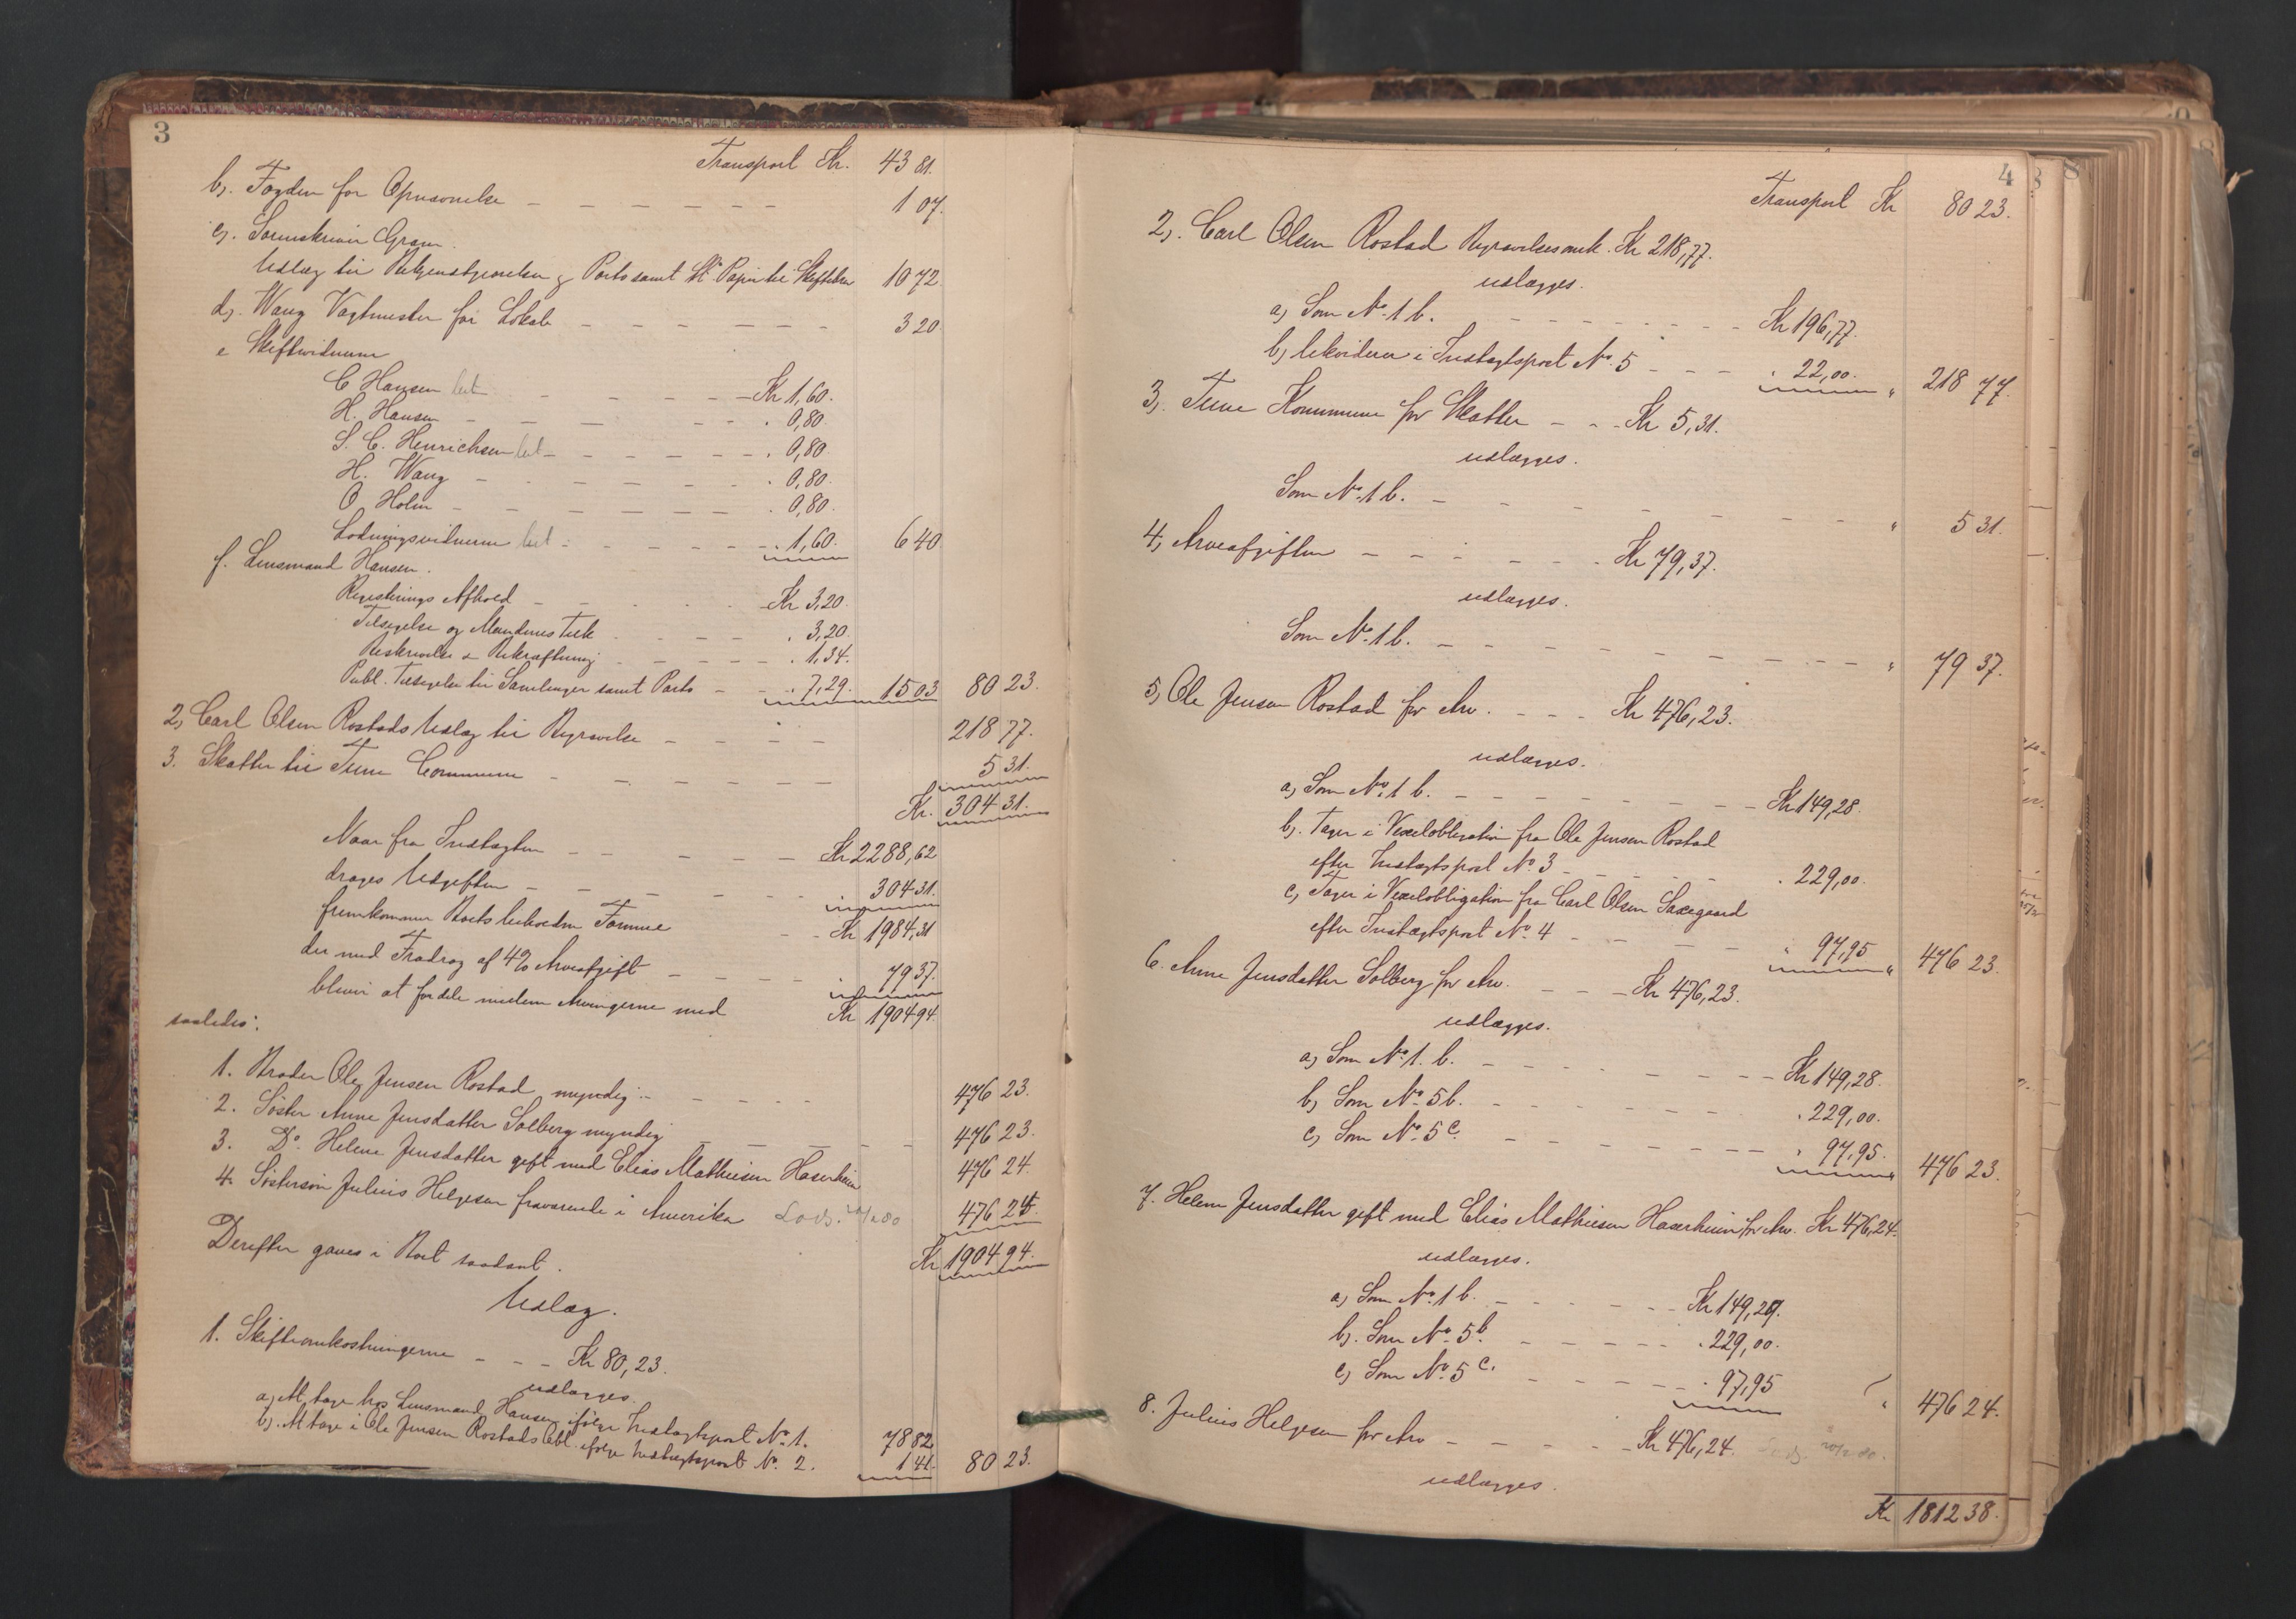 3
Transport Kr. 43 81.
b). Fogden for Opnævnelse 1 07.
c). Sorenskriver Gram.
Udlæg til Bekjendtgjørelse og Porto samt St. Papir til Skiftebrev 10 72
d). Wang Vagtmester for Lokale 3 20
e Skiftevidnerne
C Hansen bet Kr 1,60.
H. Hansen . 0,80.
S. C. Henrichsen bet . 0,80.
H. Wang . 0,80.
O Holm . 0,80.
Lodningsvidnerne bet . 1,60. 6 40
f. Lensmand Hansen.
Registrerings Afhold Kr 3,20.
Tilsigelse og Mændenes Tilk . 3,20.
Beskrivelse & Bekræftning . 1,34.
Publ. Tilsigelse til Samlinger samt Porto . 7,29. 15 03 80 23.
2, Carl Olsen Rostads Udlæg til Begravelse 218 77.
3. Skatter til Tune Commune 5 31.
Kr. 304 31.
Naar fra Indtægten Kr 2288,62
drages Udgiften 304 31.
fremkommer Boets beholdne Formue Kr 1984,31
der med Fradrag af 4% Arveafgift 79 37.
bliver at fordele mellem Arvingerne med Kr 1904 94
saaledes:
1. Broder Ole Jensen Rostad myndig 476 23.
2. Søster Anne Jensdatter Solberg myndig 476 23.
3. Do. Helene Jensdatter gift med Elias Mathiesen Haserheim 476 24
4. Søstersøn Julius Helgesen fraværende i Amerika 476 24.
Kr 1904 94.
Derefter gaves i Boet saadant.
Udlæg.
1. Skifteomkostningerne Kr 80,23.
udlægges.
a) At tage hos Lensmand Hansen ifølge Indtægtspost No. 1. 78 82
b). At tage i Ole Jensen Rostads Obl. ifølge Indtægtspost No. 2. 1 41. 80 23.
4
Transport Kr 80 23.
2). Carl Olsen Rostad Begravelsesomk. Kr 218,77.
udlægges.
a) Som No. 1 b. Kr 196,77.
b) Likviderer i Indtægtspost No. 5 . 22,00. " 218 77.
3). Tune Kommune for Skatter Kr 5,31.
udlægges.
Som No. 1 b. " 5 31.
4, Arveafgiften Kr 79,37.
udlægges.
Som No. 1 b. " 79 37.
5, Ole Jensen Rostad for Arv. Kr 476,23.
udlægges.
a) Som No. 1 b. Kr 149,28.
b). Tager i Vexelobligation fra Ole Jensen Rostad
efter Indtægtspost No. 3 . 229,00.
c) Tager i Vexelobligation fra Carl Olsen Saxegaard
efter Indtægtspost No. 4 " 97,95 " 476 23.
6. Anne Jensdatter Solberg for Arv. Kr 476,23.
udlægges.
a) Som No. 1. b. Kr 149,28.
b) Som No. 5 b. . 229,00.
c) Som No. 5 c. . 97,95. " 476 23.
7. Helene Jensdatter gift med Elias Mathiesen Haserheim for Arv. Kr 476,24.
udlægges.
a) Som No. 1 b. Kr 149,29.
b). Som No. 5 b. . 229,00.
c) Som No. 5 c. . 97,95 " 476 24.
8. Julius Helgesen for Arv Kr 476,24.
udlægges.
Kr 1812 38.